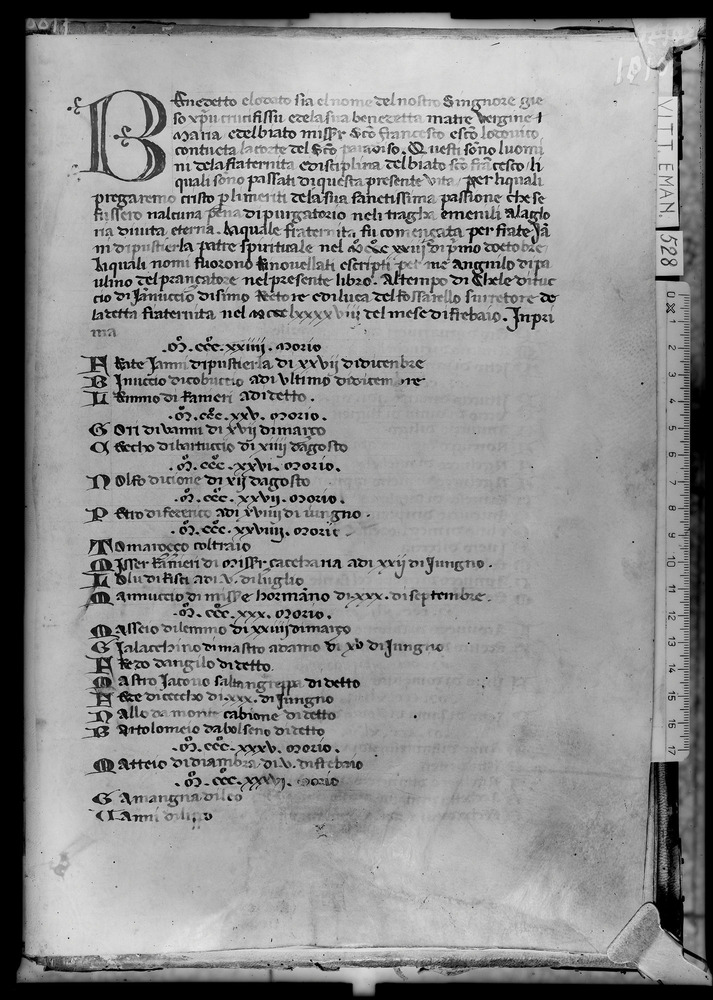 Benedetto elodato sia el nome del nostro Singnore gie
so xpu crucifissu edela sua benedetta matre vergine
Maria edelbiato missere sco francesco esco lodovico
contucta lacorte del sco paradiso. Questi sono luomi
ni dela fraternita edisciplina del biato sco francesco li
quali sono passati di questa presente vita per liquali
pregaremo cristo p li meriti dela sua sanctissima passione che se
fussero nalcuna pena di purgatorio neli tragha emenili alaglo
ria di vita eterna. Laquale fraternita fu comencata per frate Ja
ni di pustierla patre spirituale nel m ccc xxiij di pmo doctobre
Liquali nomi fuorono Rinovellati escripti per me Angnilo di pa
ulino del prancatore nel presente libro. Altempo di Chele di tuc
cio di Jannuccio disimo Rectore ediluca del fossatello surretore de
la detta fraternita nel mccclxxxxviij del mese di frebaio. In pri
ma
.M. ccc. xxiiii. morio
FRate Janni di pustierla di xxvij di dicenbre
BInuccio di cobuccio adi ultimo didicembre
LEmmo di Rameri adi detto.
.M. ccc. xxv. morio.
GOri di vanni di xvij di março
CHeccho di bartuccio di xiiij dagosto
.M. ccc. xxvi. morio.
NOlfo di cione di xij dagosto
.M. ccc. xxvij. morio.
PEtro di federico adi xviiij di iungno.
.M. ccc. xxviiij. morio
TOmarocco coltraio
MIsser Ranieri di misser caccehana adi xxij di Jungno.
LOlu di Risti adi v. di luglio
MAnnuccio di misse hormanno di xxx. di septembre.
.M. ccc. xxx. morio.
MAsseio di lemmo di xxviiij di março
GIalacchino di mastro adamo di xv di Jungno
FRedo dangilo di detto.
MAstro Jacovo saltangreppa di detto
FEde di ceccho di xxx. di Jungno
NAllo da monte cabione di detto
BArtolomeio da bolseno di detto
.M. ccc. xxxv. morio.
MAtteio di diambra di v. di frebaio
.M. ccc. xxxvi. morio
GAmangna di leo
VAnni di lippo
VITT. EMAN. 528
0 1 2 3 4 5 6 7 8 9 10 11 12 13 14 15 16 17